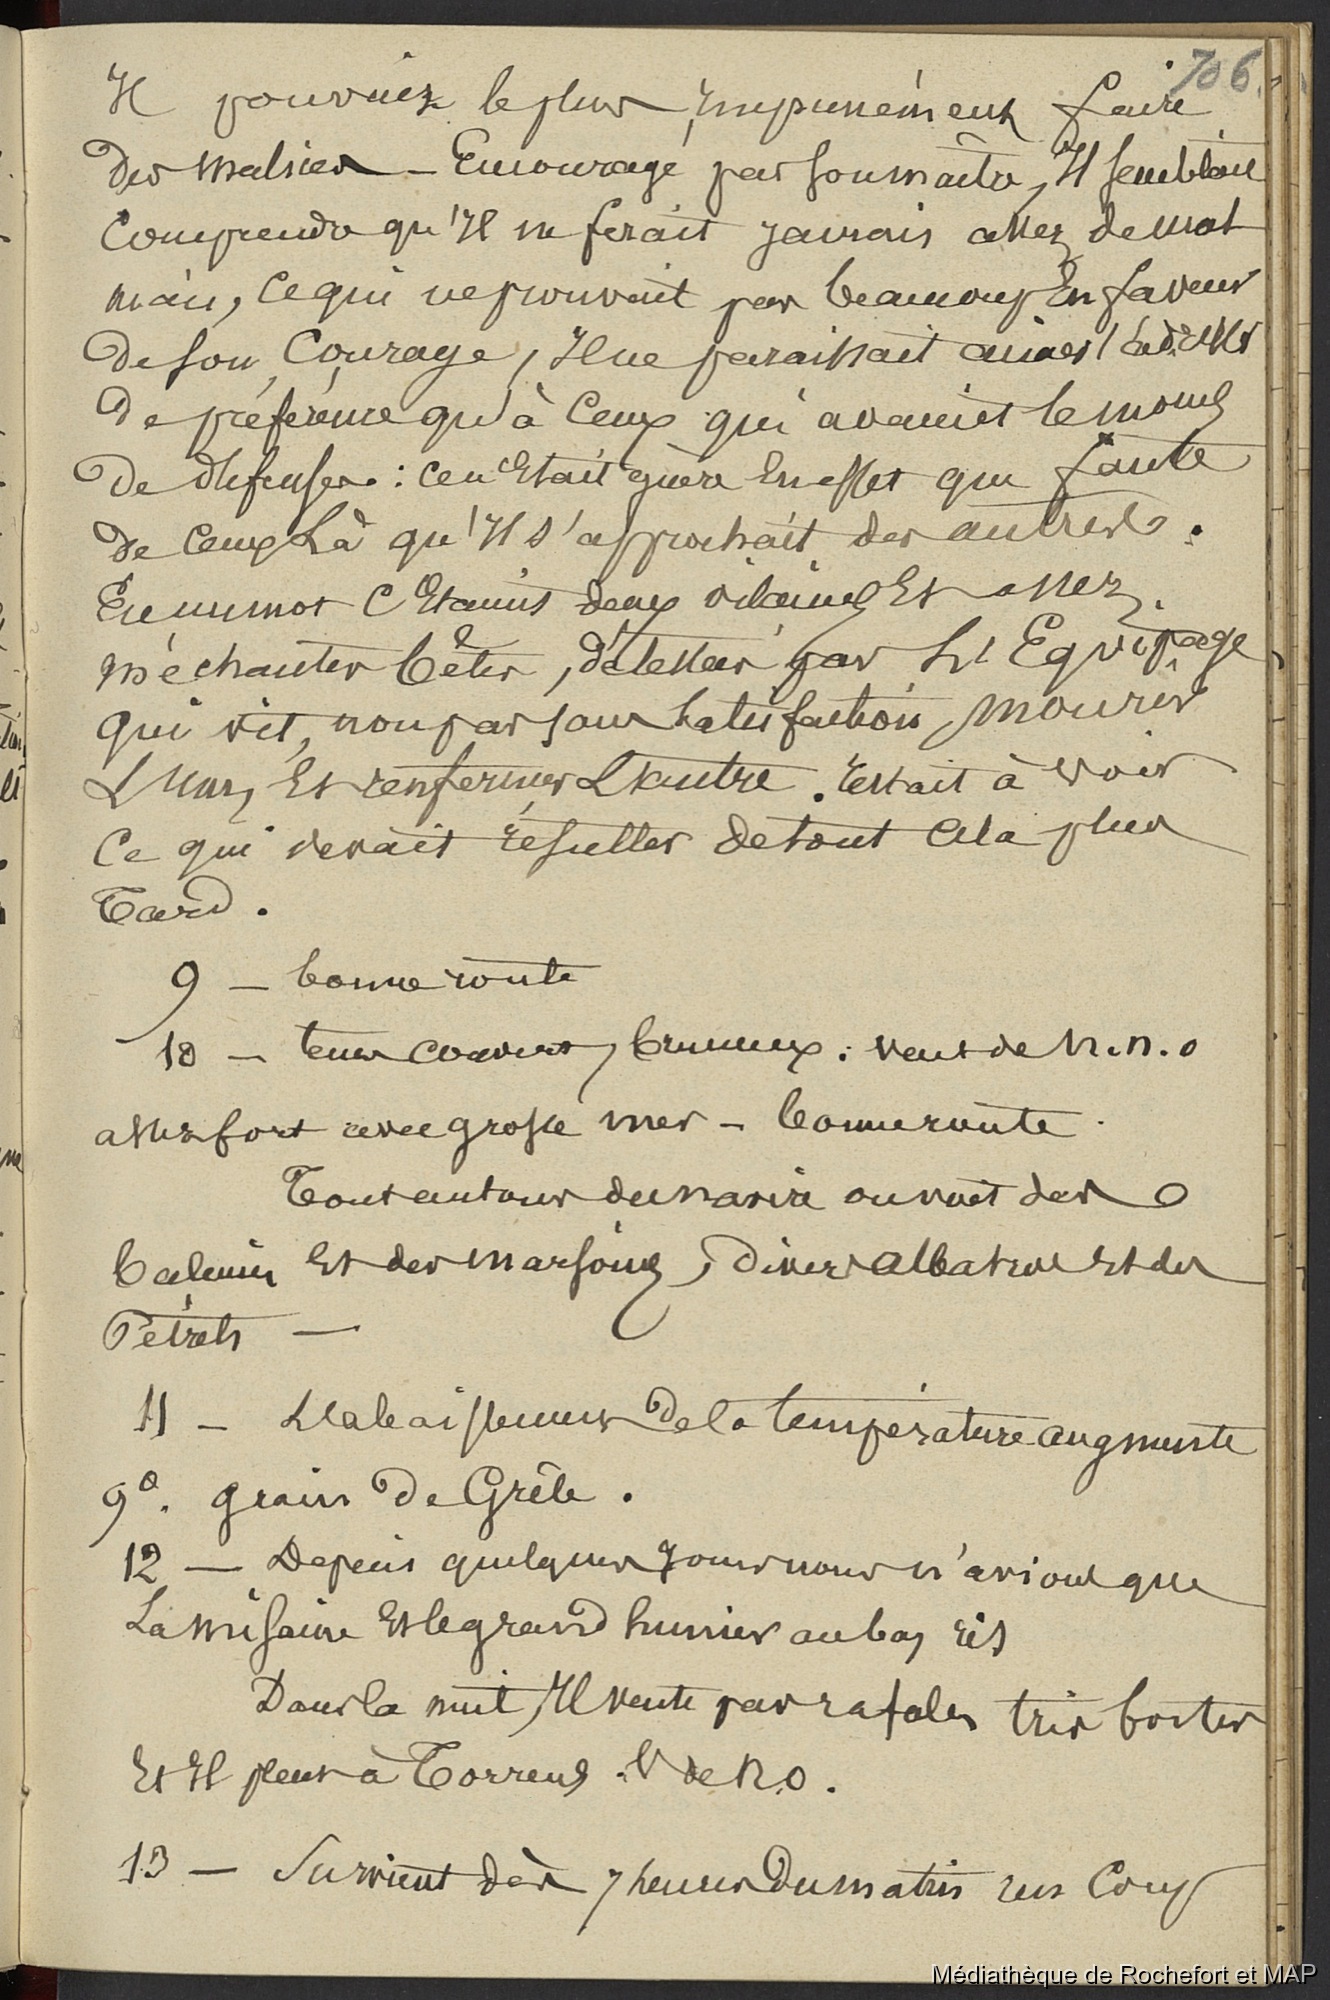 706
Il pouvait le plus impunément faire
des malices — Encouragé par son maître, Il semblait
Comprendre qu'Il ne ferait jamais assez de mal
mais, Ce qui ne prouvait pas beaucoup En faveur
de son Courage, Il ne paraissait aimer
De préférence qu'à Ceux qui avaient le moins
De défenses : ce n'Etait guère En effet que faute
de Ceux Là qu'Il s'approchait des autres.
En un mot C'Etaient deux vilaines Et assez
méchantes bêtes, détestées par L'Equipage
qui vit, non pas sans Satisfaction, Mourir
L'une, Et renfermer L'autre. restait à voir
Ce qui devait résulter de tout Cela plus
Tard.
9 — bonne route
10 — tems couvert, brumeux : vent de N.N.O
assez fort avec grosse mer — bonne route.
Tout autour du navire on voit des
baleines Et des Marsouins, divers albatros Et des
Pétrels —
11 — L'abaissement De la température augmente
9°. grains De Grêle.
12 — Depuis quelques Jours nous n'avions que
La misaine Et le grand hunier au bas ris
Dans la nuit, Il vente par rafales très fortes
Et Il pleut à Torrens. V de N.O.
13 — Survient dès 7 heures Du matin un Coup
Médiathèque de Rochefort et MAP